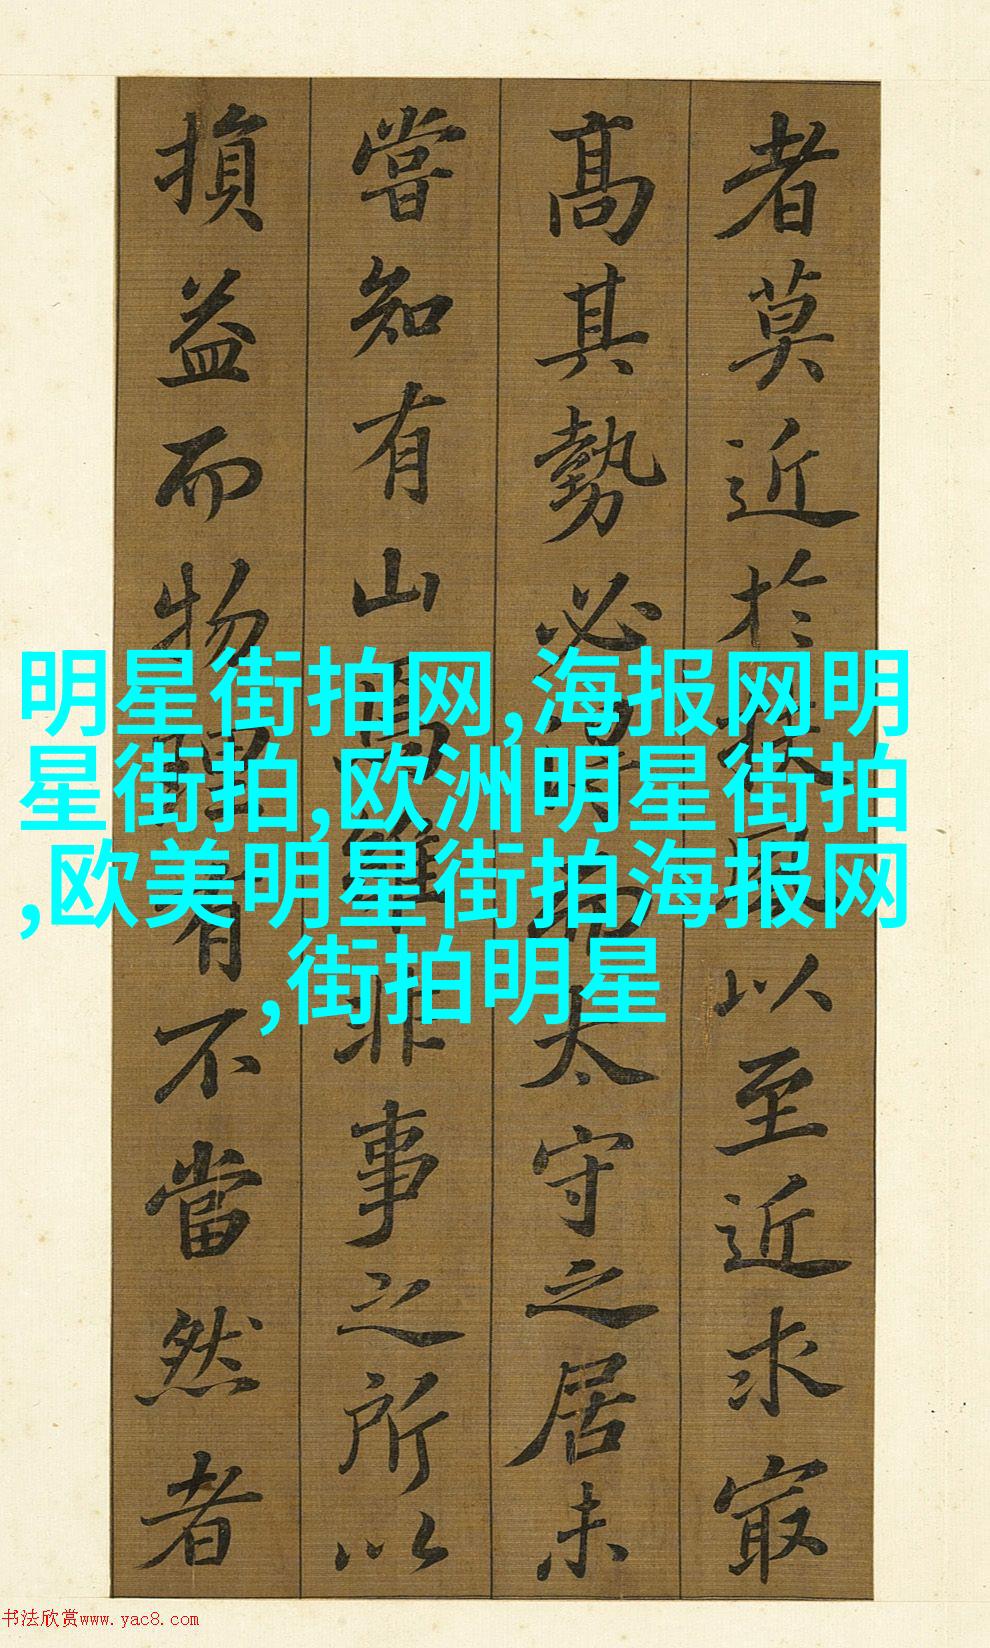 者莫近於扶風以至近求㝡
高其勢必得而太守之居未
嘗知有山焉雖非事之所以
損益而物理有不當然者
明星街拍网,海报网明
星街拍,欧洲明星街拍
,欧美明星街拍海报网
,街拍明星
书法欣赏www.yac8.com